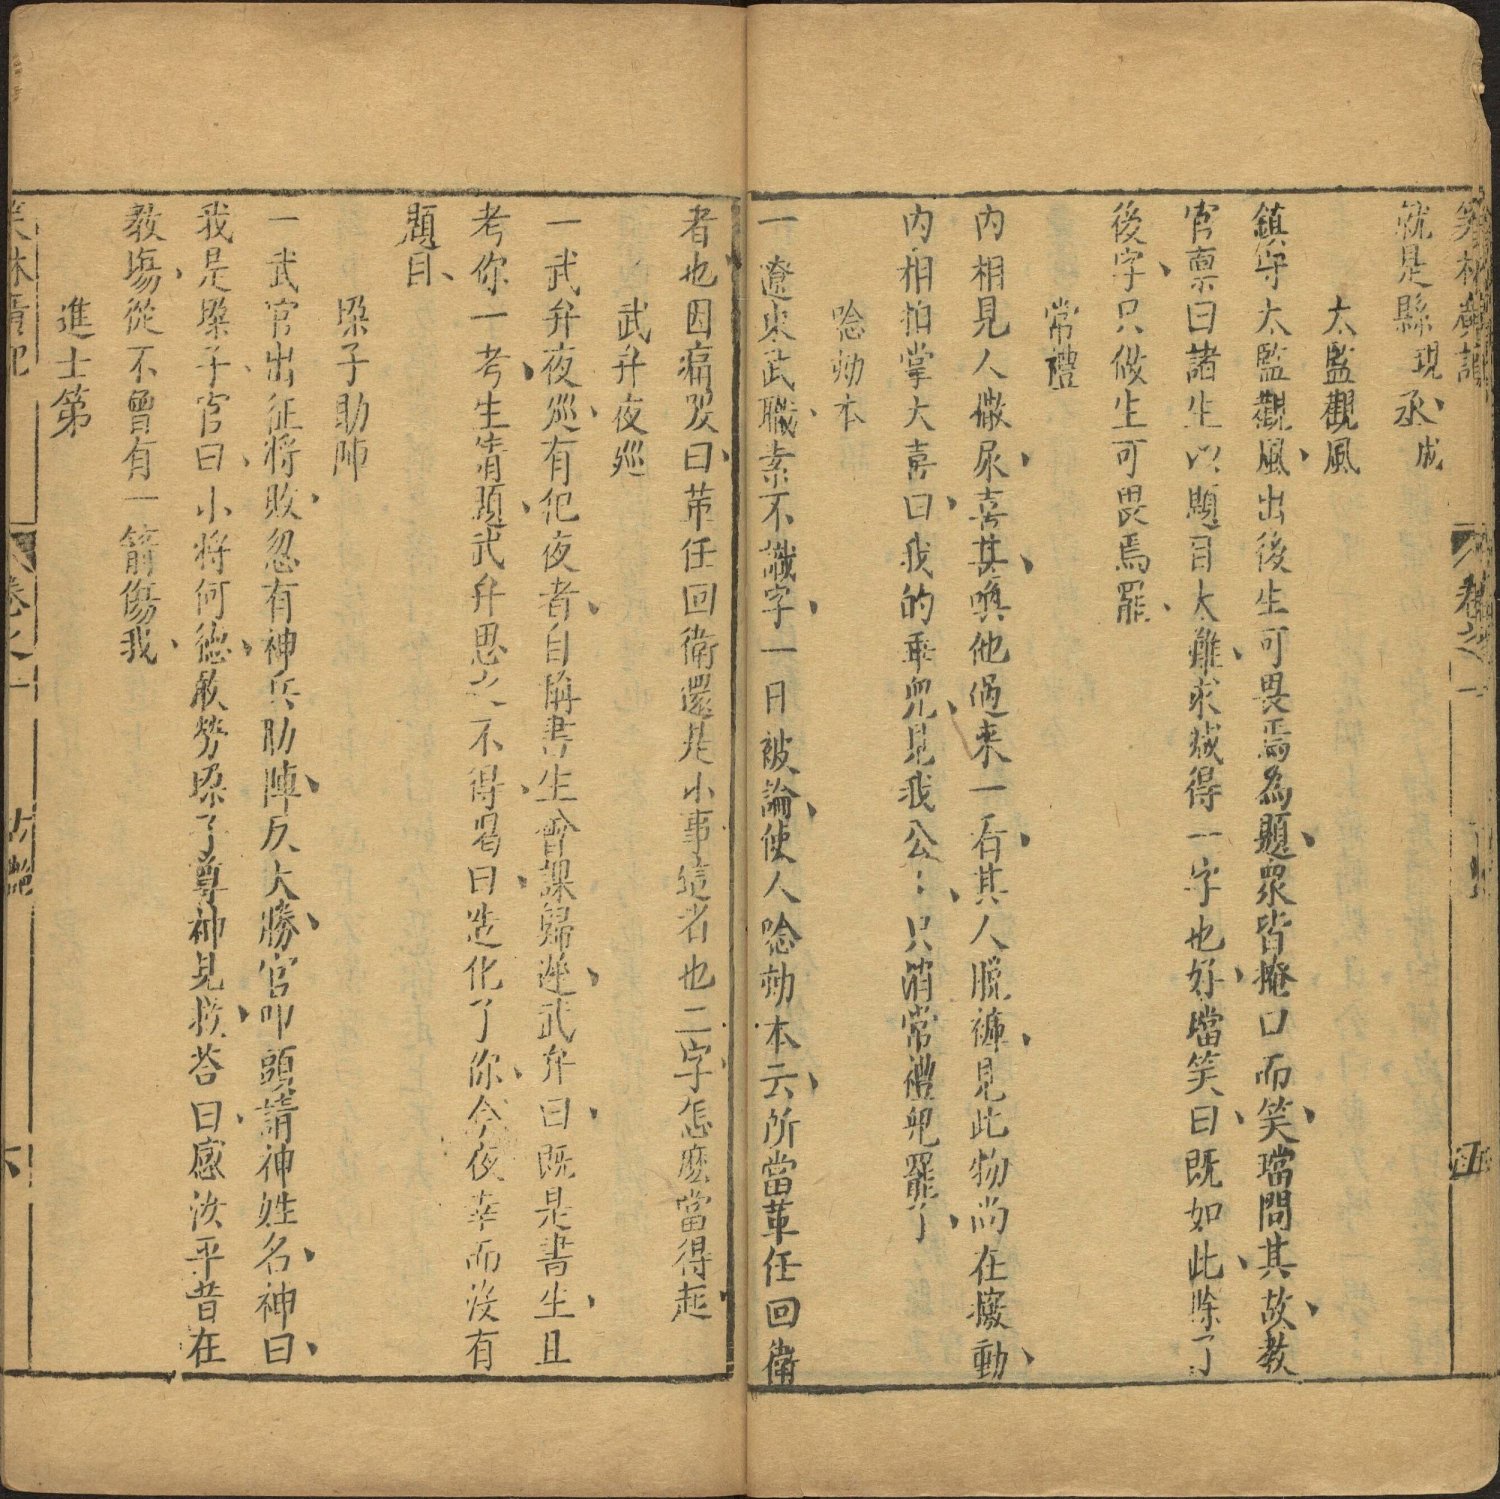 笑林廣記 卷之一 五
就是縣丞
現成
太監觀風
鎮守太監觀風出後生可畏焉為題眾皆掩口而笑璫問其故教
官禀曰諸生以題目太難求減得一字也好璫笑曰既如此除了
後字只做生可畏焉罷
常禮
內相見人撒尿喜甚喚他過来一看其人脫褲見此物尚在癈動
内相拍掌大喜曰我的乖兜見我公：只消常禮兜罷了
唸劾本
一遼東武職素不識字一日被論使人唸劾本云所當革任回衛
者也因痛哭曰革任回衛還是小事這者也二字怎麽當得起
武弁夜廵
一武弁夜廵有犯夜者自稱書生會課歸遲武弁曰既是書生且
考你一考生請題武弁思之不得喝曰造化了你今夜幸而沒有
題目
垜子助陣
一武官出征將敗忽有神兵助陣反大勝官叩頭請神姓名神曰
我是垜子官曰小將何德敢勞垜子尊神見救荅曰感汝平昔在
教塲從不曾有一箭傷我
進士第
笑林廣記 卷之一 古艷 六